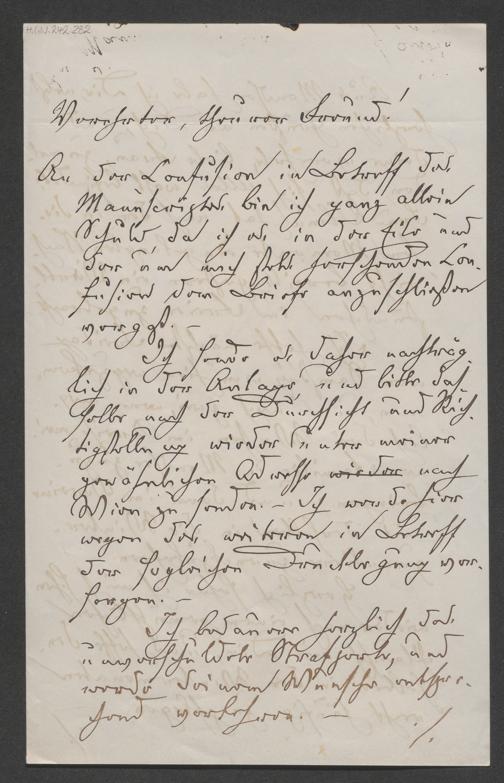 H.I.N. 242.282
Verehrter, theurer Freund!
An der Confusion in Betreff des
Manuscriptes bin ich ganz allein
Schuld, da ich es in der Eile und
der um mich stets herrschenden Con-
fusion dem Briefe anzuschließen
vergaß. –
Ich sende es daher nachträg-
lich in der Anlage und bitte das-
selbe nach der Durchsicht und Rich-
tigstellung wieder unter meiner
gewöhnlichen Adresse wieder nach
Wien zu senden. – Ich werde hier
wegen des weiteren in Betreff
der sogleichen Drucklegung vor-
sorgen. –
Ich bedauere herzlich das
unverschuldete Strafporto, und
werde deinem Wunsche entspre-
chend vorkehren. –
./.